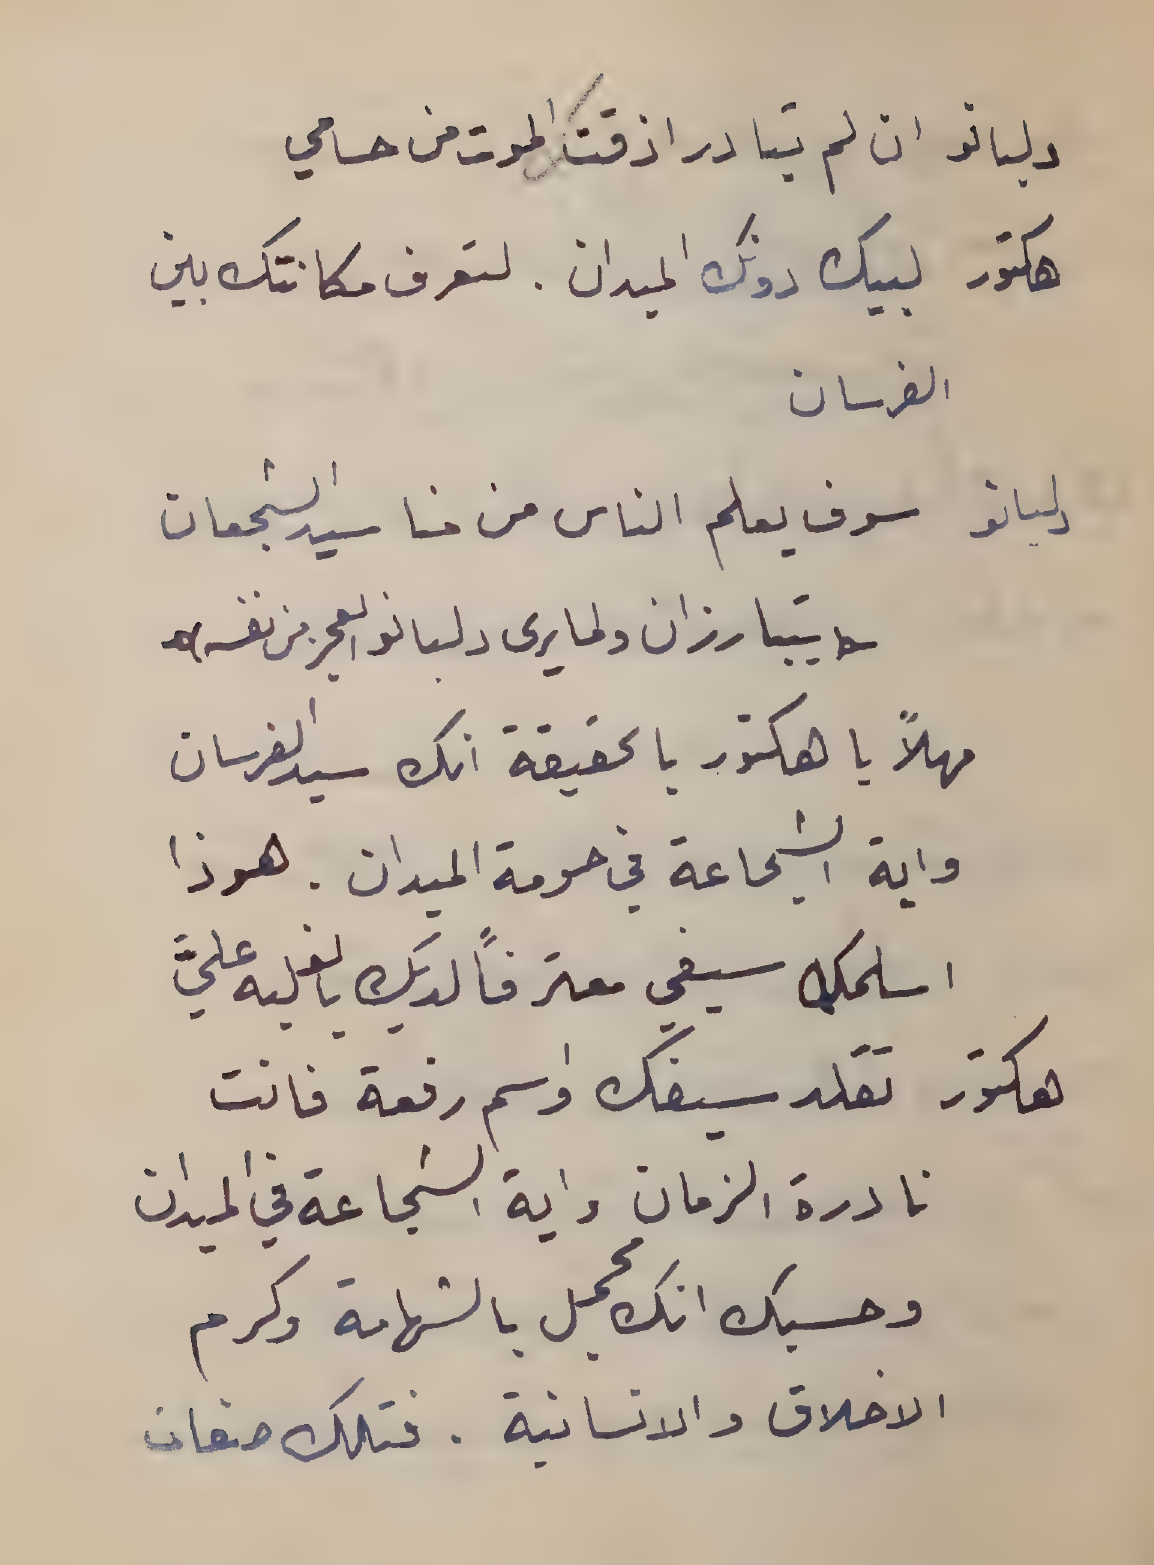 دلبانو ان لم تبادر اذقتك الموت من حسامي
هكتور لبيك دونك الميدان . لتعرف مكانتك بين
الفرسان
دلبانو سوف يعلم الناس من منا سيد الشجعان
« يتبارزان ولما يرى دلبانو العجز من نفسه »
مهلاً يا هكتور بالحقيقة انك سيد الفرسان
واية الشجاعة في حومة الميدان . هوذا
اسلمك سيفي معترفاً لديك بالغلبه عليَّ
هكتور تقلد سيفك واسم رفعة فانت
نادرة الزمان واية الشجاعة في الميدان
وحسبك انك مجمل بالشهامة وكرم
الاخلاق والانسانية . فتلك صفات